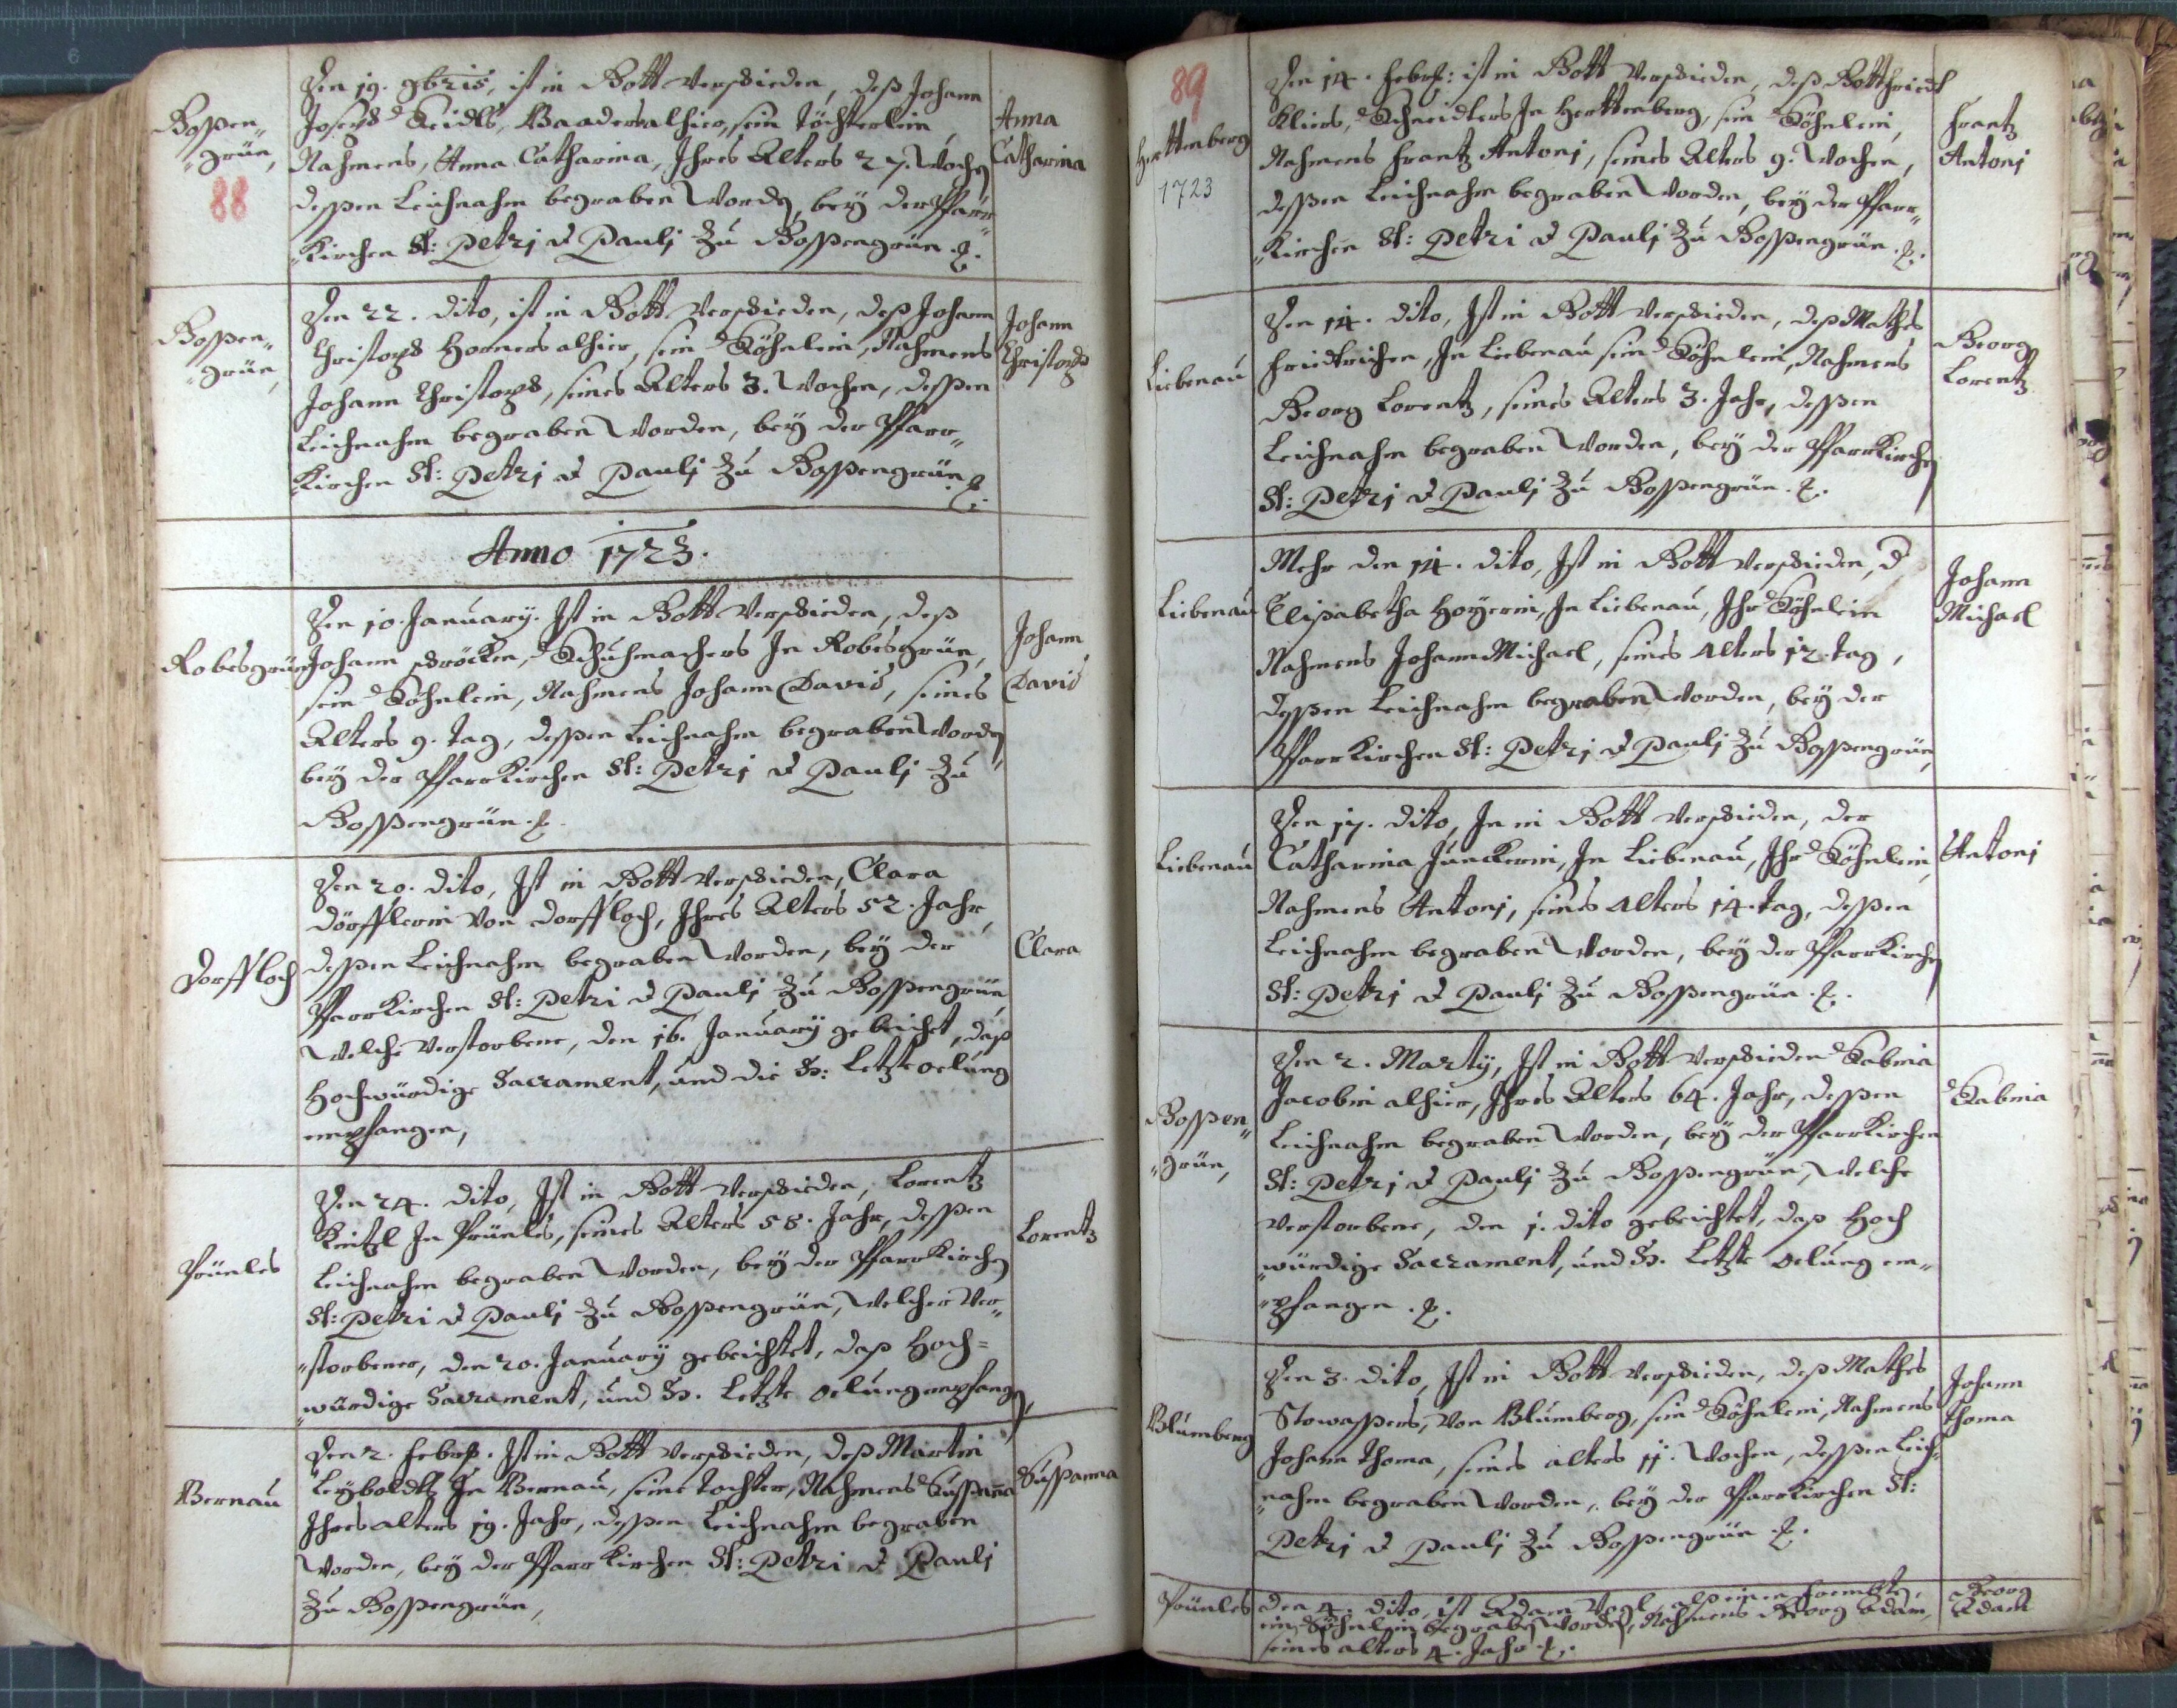 88
Gossen„
„grün,
Den 19. 9bris, ist in Gott verschieden, deß Johann
Joseph Seidls, Baaders alhier, sein töchterlein
Nahmens, Anna Catharina, Ihres Alters 27. Wochen
dessen Leichnahm begraben worden, bey der Pfarr„
„Kirchen St: Petri & Pauli zu Gossengrün .p.
Anna
Catharina
Gossen„
„grün,
Den 22. dito, ist in Gott verschieden, deß Johann
Christoph Horners alhier, sein Söhnlein, Nahmens
Johann Christoph, seines Alters 3. Wochen, dessen
Leichnahm begraben worden, bey der Pfarr„
„Kirchen St: Petri & Pauli zu Gossengrün .p.
Johann
Christoph
Anno 1723.
Robesgrün
Den 10. January. Ist in Gott verschieden, deß
Johann schröcken, Schuhmachers In Robesgrün,
sein Söhnlein, Nahmens Johann David, seines
Alters 9. tag, dessen Leichnahm begraben worden
bey der PfarrKirchen St: Petri & Pauli zu
Gossengrün .p.
Johann
David
Dorffloch
Den 20. dito, Ist in Gott verschieden, Clara
Dörfflerin von Dorffloch, Ihres Alters 52. Jahr,
dessen Leichnahm begraben worden, bey der
PfarrKirchen St: Petri & Pauli zu Gossengrün,
welche verstorbene, den 16. January gebeichet, daß
Hochwürdige Sacrament, und die H: Letzte oelung
empfangen,
Clara
Prünles
Den 24. dito, Ist in Gott verschieden, Lorentz
Keitzl In Prünles, seines Alters 58. Jahr, dessen
Leichnahm begraben worden, bey der PfarrKirchen
St: Petri & Pauli zu Gossengrün, welcher ver„
„storbener, den 20. January gebeichtet, daß Hoch=
„würdige Sacrament, und H. Letzte oelung empfangen,
Lorentz
Bernau
Den 2. Febrs. Ist in Gott verschieden, deß Martin
Leyboldts In Bernau, seine tochter, Nahmens Sussanna
Ihres alters 19. Jahr, dessen Leichnahm begraben
worden, bey der Pfarr Kirchen St: Petri & Pauli
zu Gossengrün,
Sussanna
89
Herttenberg
1723
Den 14. Febrs: ist in Gott verschieden, deß Gottfriedt
Kliers, Schneidters In Herttenberg, sein Söhnlein,
Nahmens Frantz Antoni, seines Alters 9. Wochen,
dessen Leichnahm begraben worden, bey der Pfarr„
„Kirchen St: Petri & Pauli zu Gossengrün .p.
Frantz
Antoni
Liebenau
Den 14. dito, Ist in Gott verschieden, deß Mathes
Friedrichen, In Liebenau sein Söhnlein, Nahmens
Georg Lorentz, seines Alters 3. Jahr, dessen
Leichnahm begraben worden, bey der PfarrKirchen
St: Petri & Pauli zu Gossengrün .p.
Georg
Lorentz
Liebenau
Mehr den 14. dito, Ist in Gott verschieden, d
Elisabetha Hoyerin, In Liebenau, Ihr Söhnlein
Nahmens Johann Michael, seines Alters 12. tag,
dessen Leichnahm begraben worden, bey der
PfarrKirchen St: Petri & Pauli zu Gossengrün,
Johann
Michael
Liebenau
Den 17. dito, In in Gott verschieden, der
Catharina Junckerin, In Liebenau, Ihr Söhnlein,
Nahmens Antoni, seines Alters 14. tag, dessen
Leichnahm begraben worden, bey der PfarrKirchen
St: Petri & Pauli zu Gossengrün .p.
Antoni
Gossen„
„grün,
Den 2. Marty, Ist in Gott verschieden Sabina
Jacobin alhier, Ihres Alters 64. Jahr, dessen
Leichnahm begraben worden, bey der PfarrKirchen
St: Petri & Pauli zu Gossengrün, welche
verstorbene, den 1. dito gebeichtet, daß Hoch
„würdige Sacrament, und H. Letzte oelung em„
„pfangen .p.
Sabina
Blumberg
Den 3. dito, Ist in Gott verschieden, deß Mathes
Stowassers, von Blumberg, sein Söhnlein, Nahmens
Johann Thoma, seines alters 11. Wochen, dessen Leich„
„nahm begraben worden, bey der PfarrKirchen St:
Petri & Pauli zu Gossengrün .p.
Johann
Thoma
Prünles
den 4. dito, ist Adam Vogl, alß einen frembten,
ein Söhnlein begraben worden, Nahmens Georg Adam,
seines alters 4. Jahr .p.
Georg
Adam